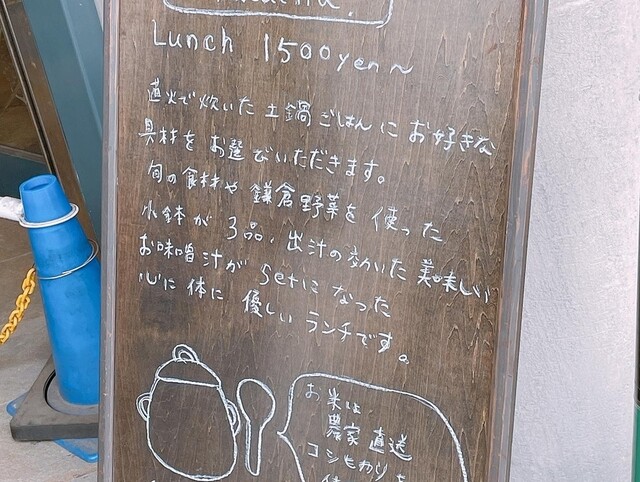 Lunch 1500yen〜
直火で炊いた土鍋ごはんにお好きな
具材をお選びいただきます。
旬の食材や鎌倉野菜を使った
小鉢が3品、出汁の効いた美味しい
お味噌汁がsetになった
心に体に優しいランチです。
お米は
農家直送
コシヒカリを